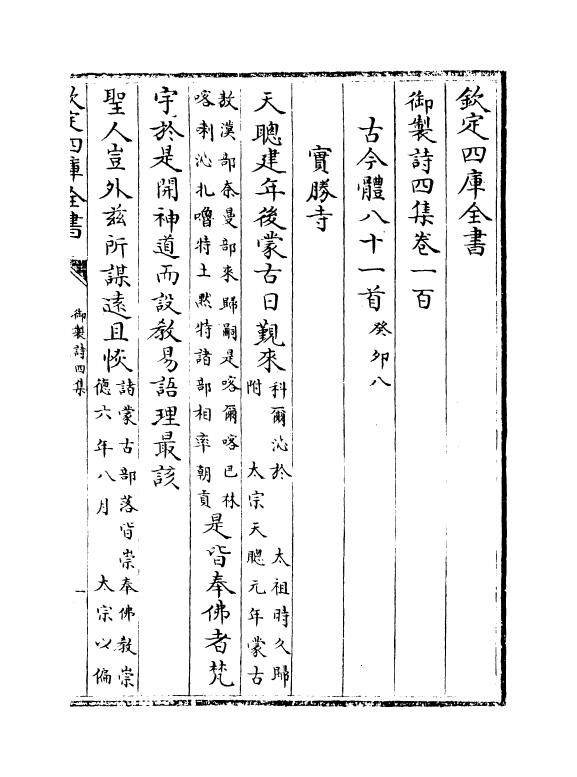 欽定四庫全書
御製詩四集卷一百
古今體八十一首癸卯八
實勝寺
天聰建年後蒙古日覲來科爾沁於　太祖時久歸
附　太宗天聰元年蒙古
敖漢部奈曼部來歸嗣是喀爾喀巴林
喀剌沁扎嚕特土黙特諸部相率朝貢是皆奉佛者梵
宇於是開神道而設教易語理最該
聖人豈外兹所謀遠且恢諸蒙古部落皆崇奉佛教崇
德六年八月　太宗以偏
欽定四庫全書
御製詩四集
一